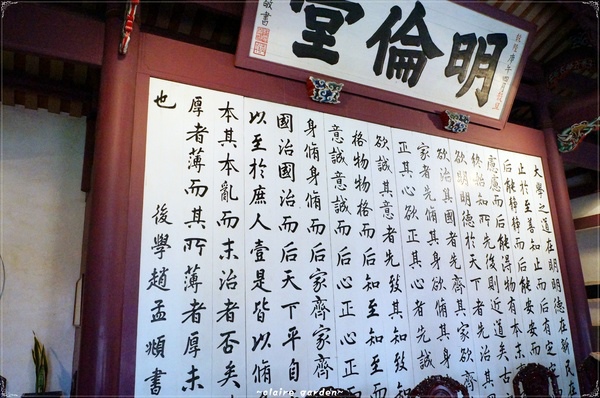 明倫堂
敬書
大學之道在明明德在新民在
止於至善知止而后有定
后能靜靜而后能安安而
慮慮而后能得物有本末
終始知所先後則近道矣古
欲明明德於天下者先治其
欲治其國者先齊其家欲齊
家者先脩其身欲脩其
正其心欲正其心者先誠
欲誠其意者先致其知致知
格物物格而后知至知
意誠意誠而后心正心正
身脩身脩而后家齊家齊
國治國治而后天下平自
以至於庶人壹是皆以脩
本其本亂而末治者否矣
厚者薄而其所薄者厚未
也
後學趙孟頫書
~claire garden~